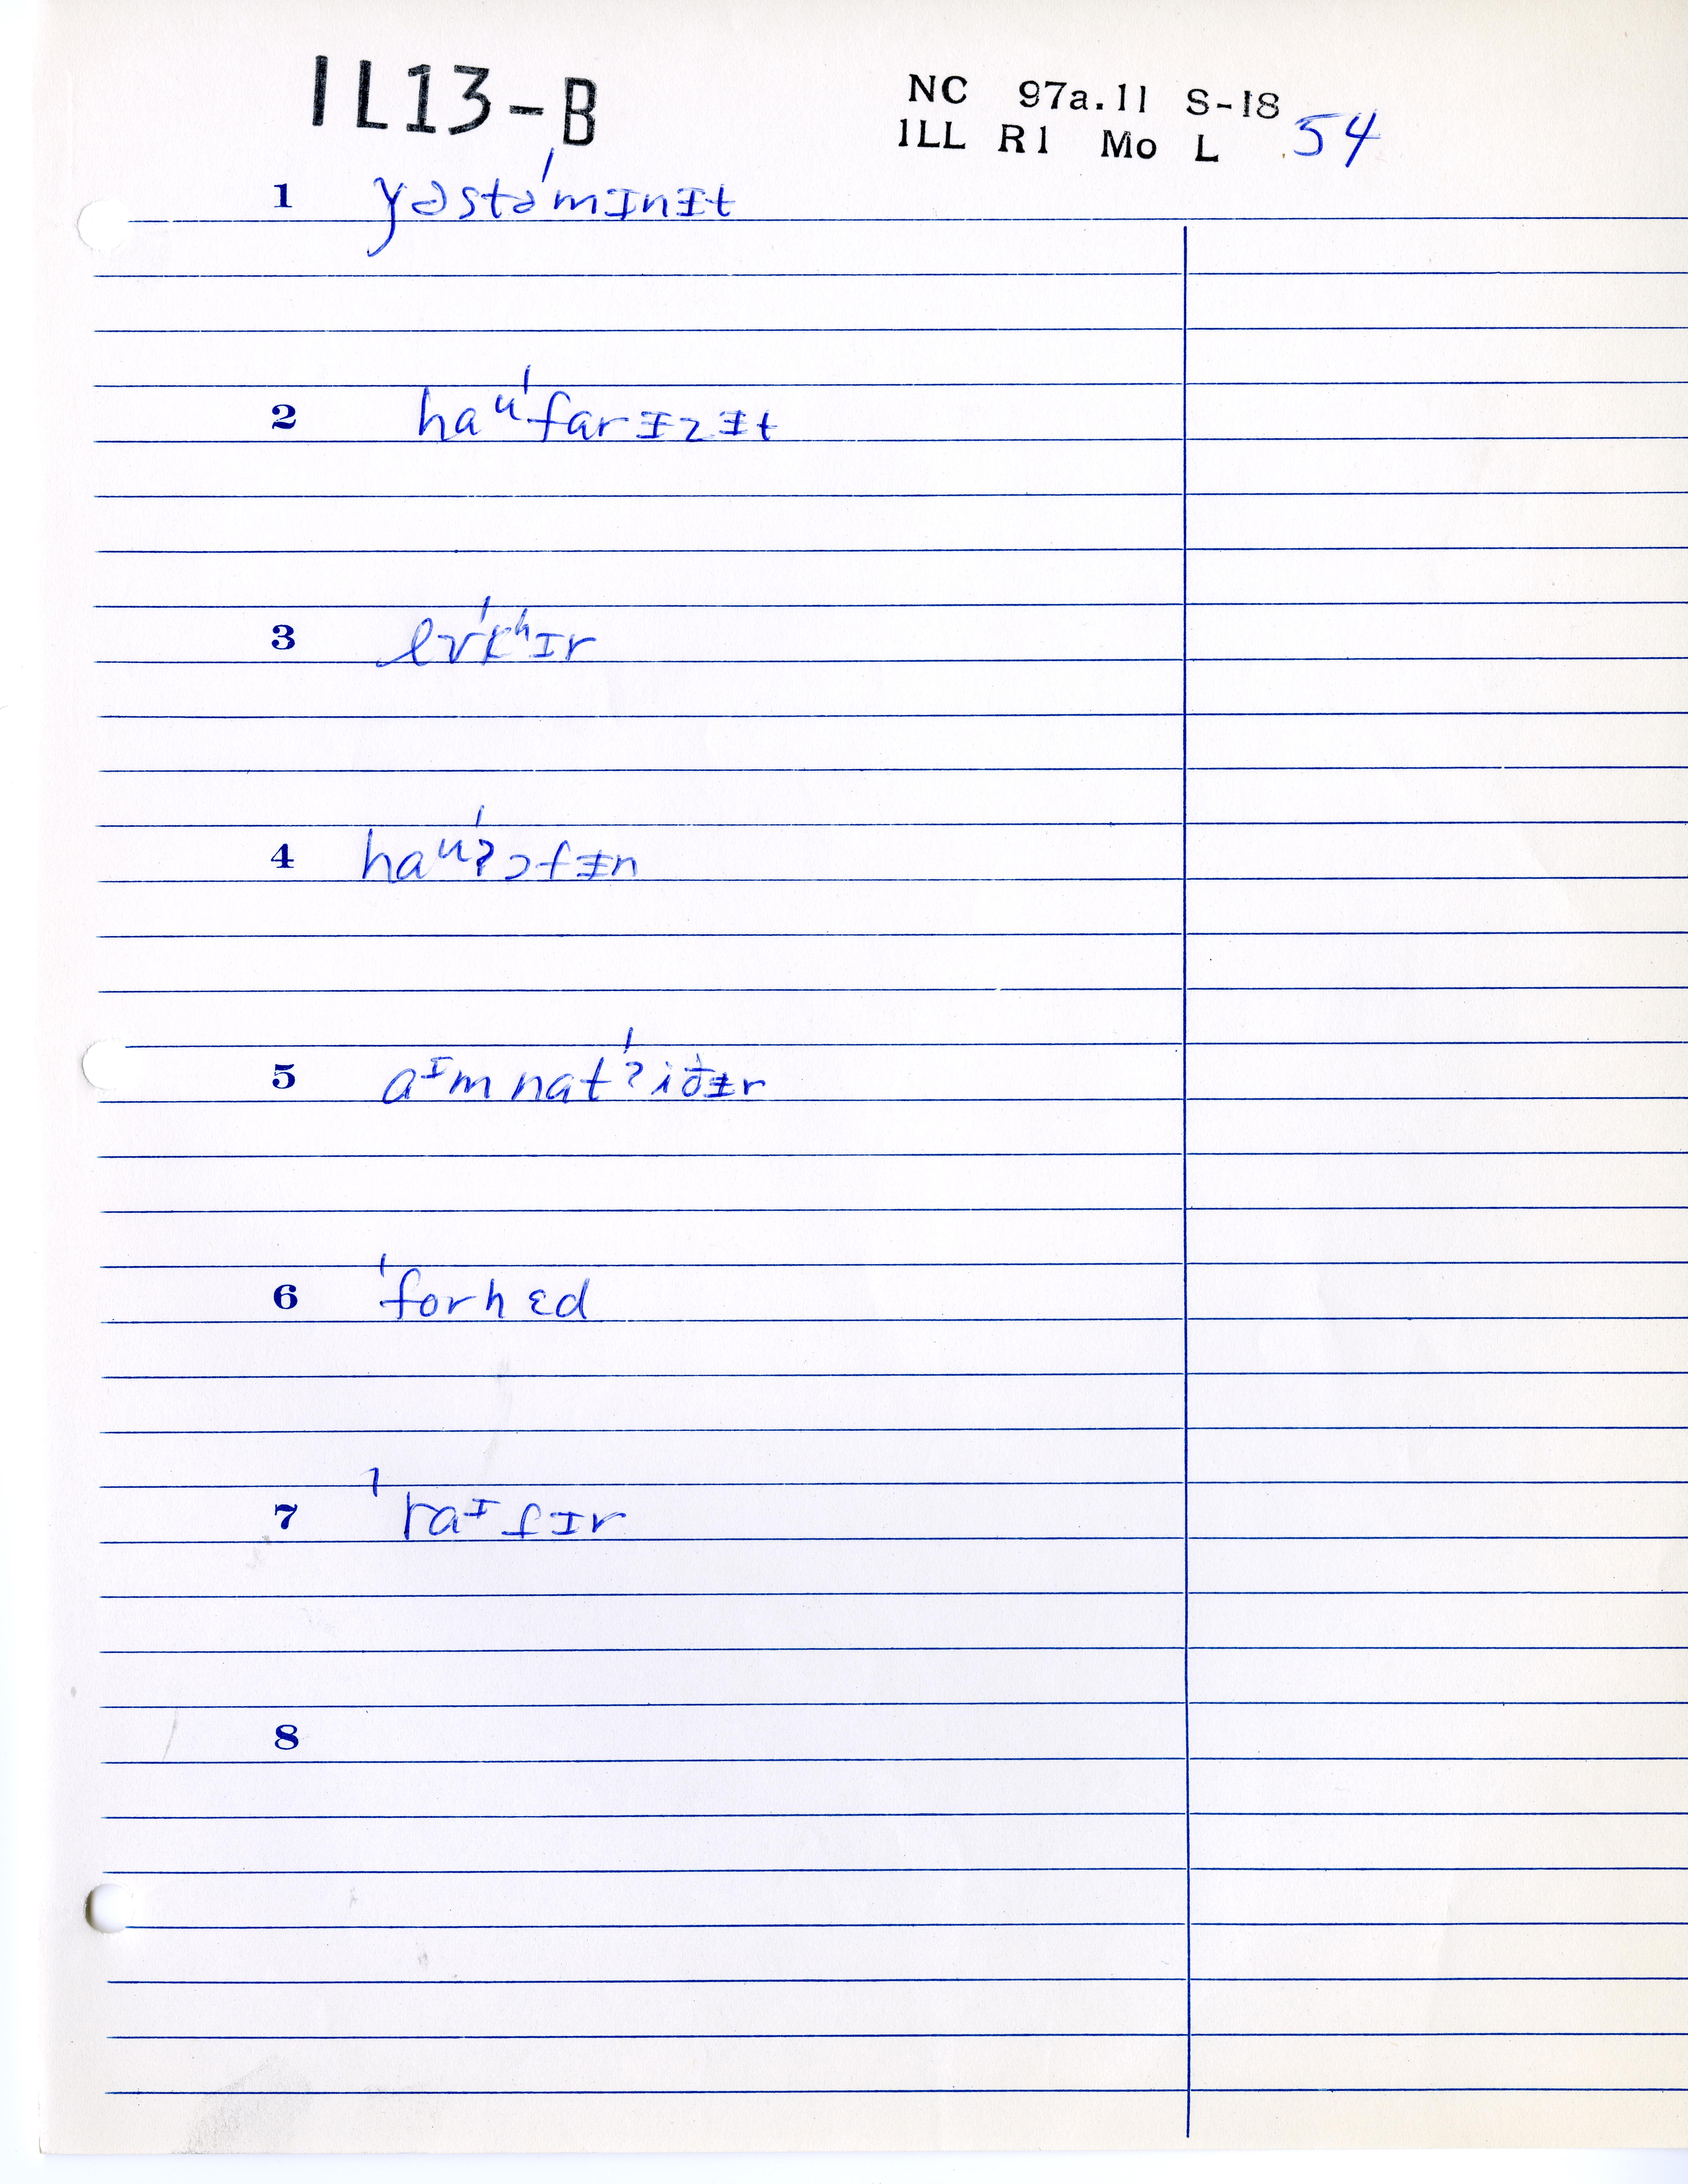 IL13-B
NC 97a.11 S-18
ILL R1 Mo L 54
1 yəstə'mɪnɪt
2 haᵘ'farɪ̵zɪ̵t
3 lʊ'kʰɪr
4 haᵘ'ʔɔfɪ̵n
5 aᶦm nat'ʔiðɪ̵r
6 'forhɛd
7 'raᶦfɪr
8